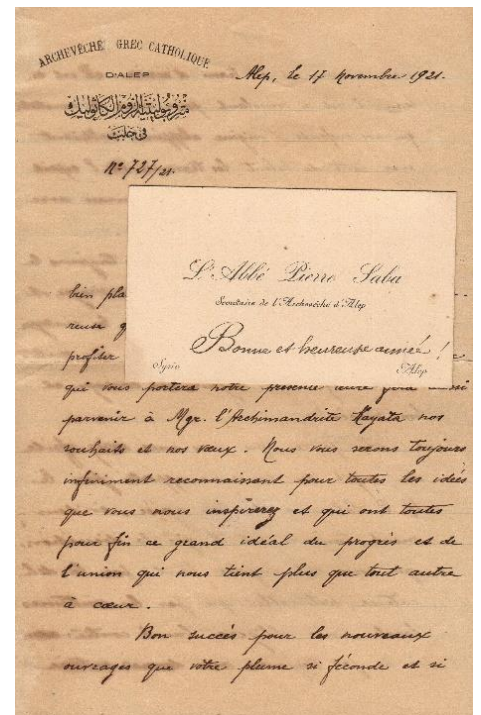 ARCHEVÊCHÉ GREC CATHOLIQUE
D'ALEP
متروبوليتية الروم الكاثوليك
في حلب
Alep, le 17 Novembre 1921.
N° 727/21
L'Abbé Pierre Saba
Secrétaire de l'Archevêché d'Alep
Bonne et heureuse année !
Syrie
Alep
bien
reuse
profiter
qui vous portera notre présente
parvenir à Mgr. l'Archimandrite Kayata nos
souhaits et nos vœux. Nous vous serons toujours
infiniment reconnaissant pour toutes les idées
que vous nous inspirerez et qui ont toutes
pour fin ce grand idéal du progrès et de
l'union qui nous tient plus que tout autre
à cœur.
Bon succès pour les nouveaux
ouvrages que votre plume si féconde et si